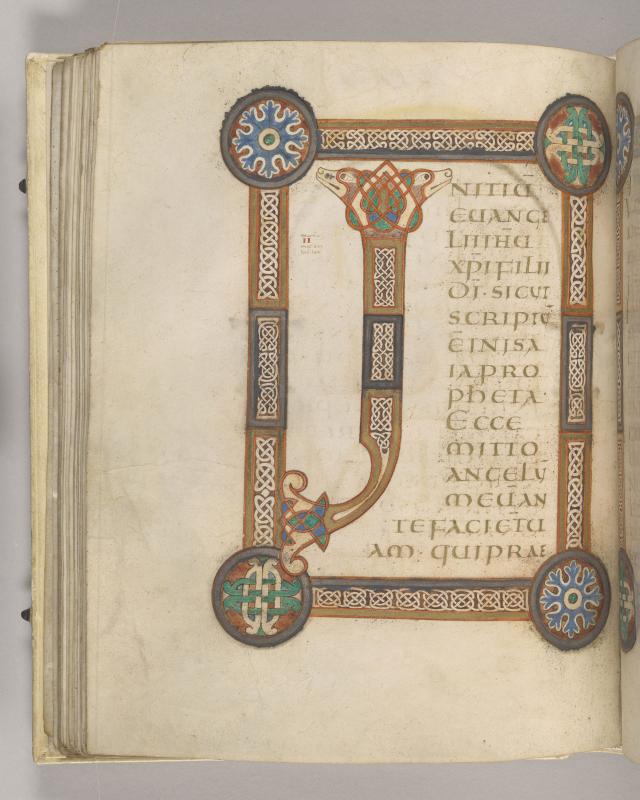 INITIŪ
EUANGE
LII IHŪ
XP̄I FILII
DĪ · SICUT
SCRIPTŪ
Ē IN ISA
IA PRO
PHETA ·
ECCE
MITTO
ANGELŪ
MEŪ AN
TE FACIĒ TU
AM · QUI PRAE
II